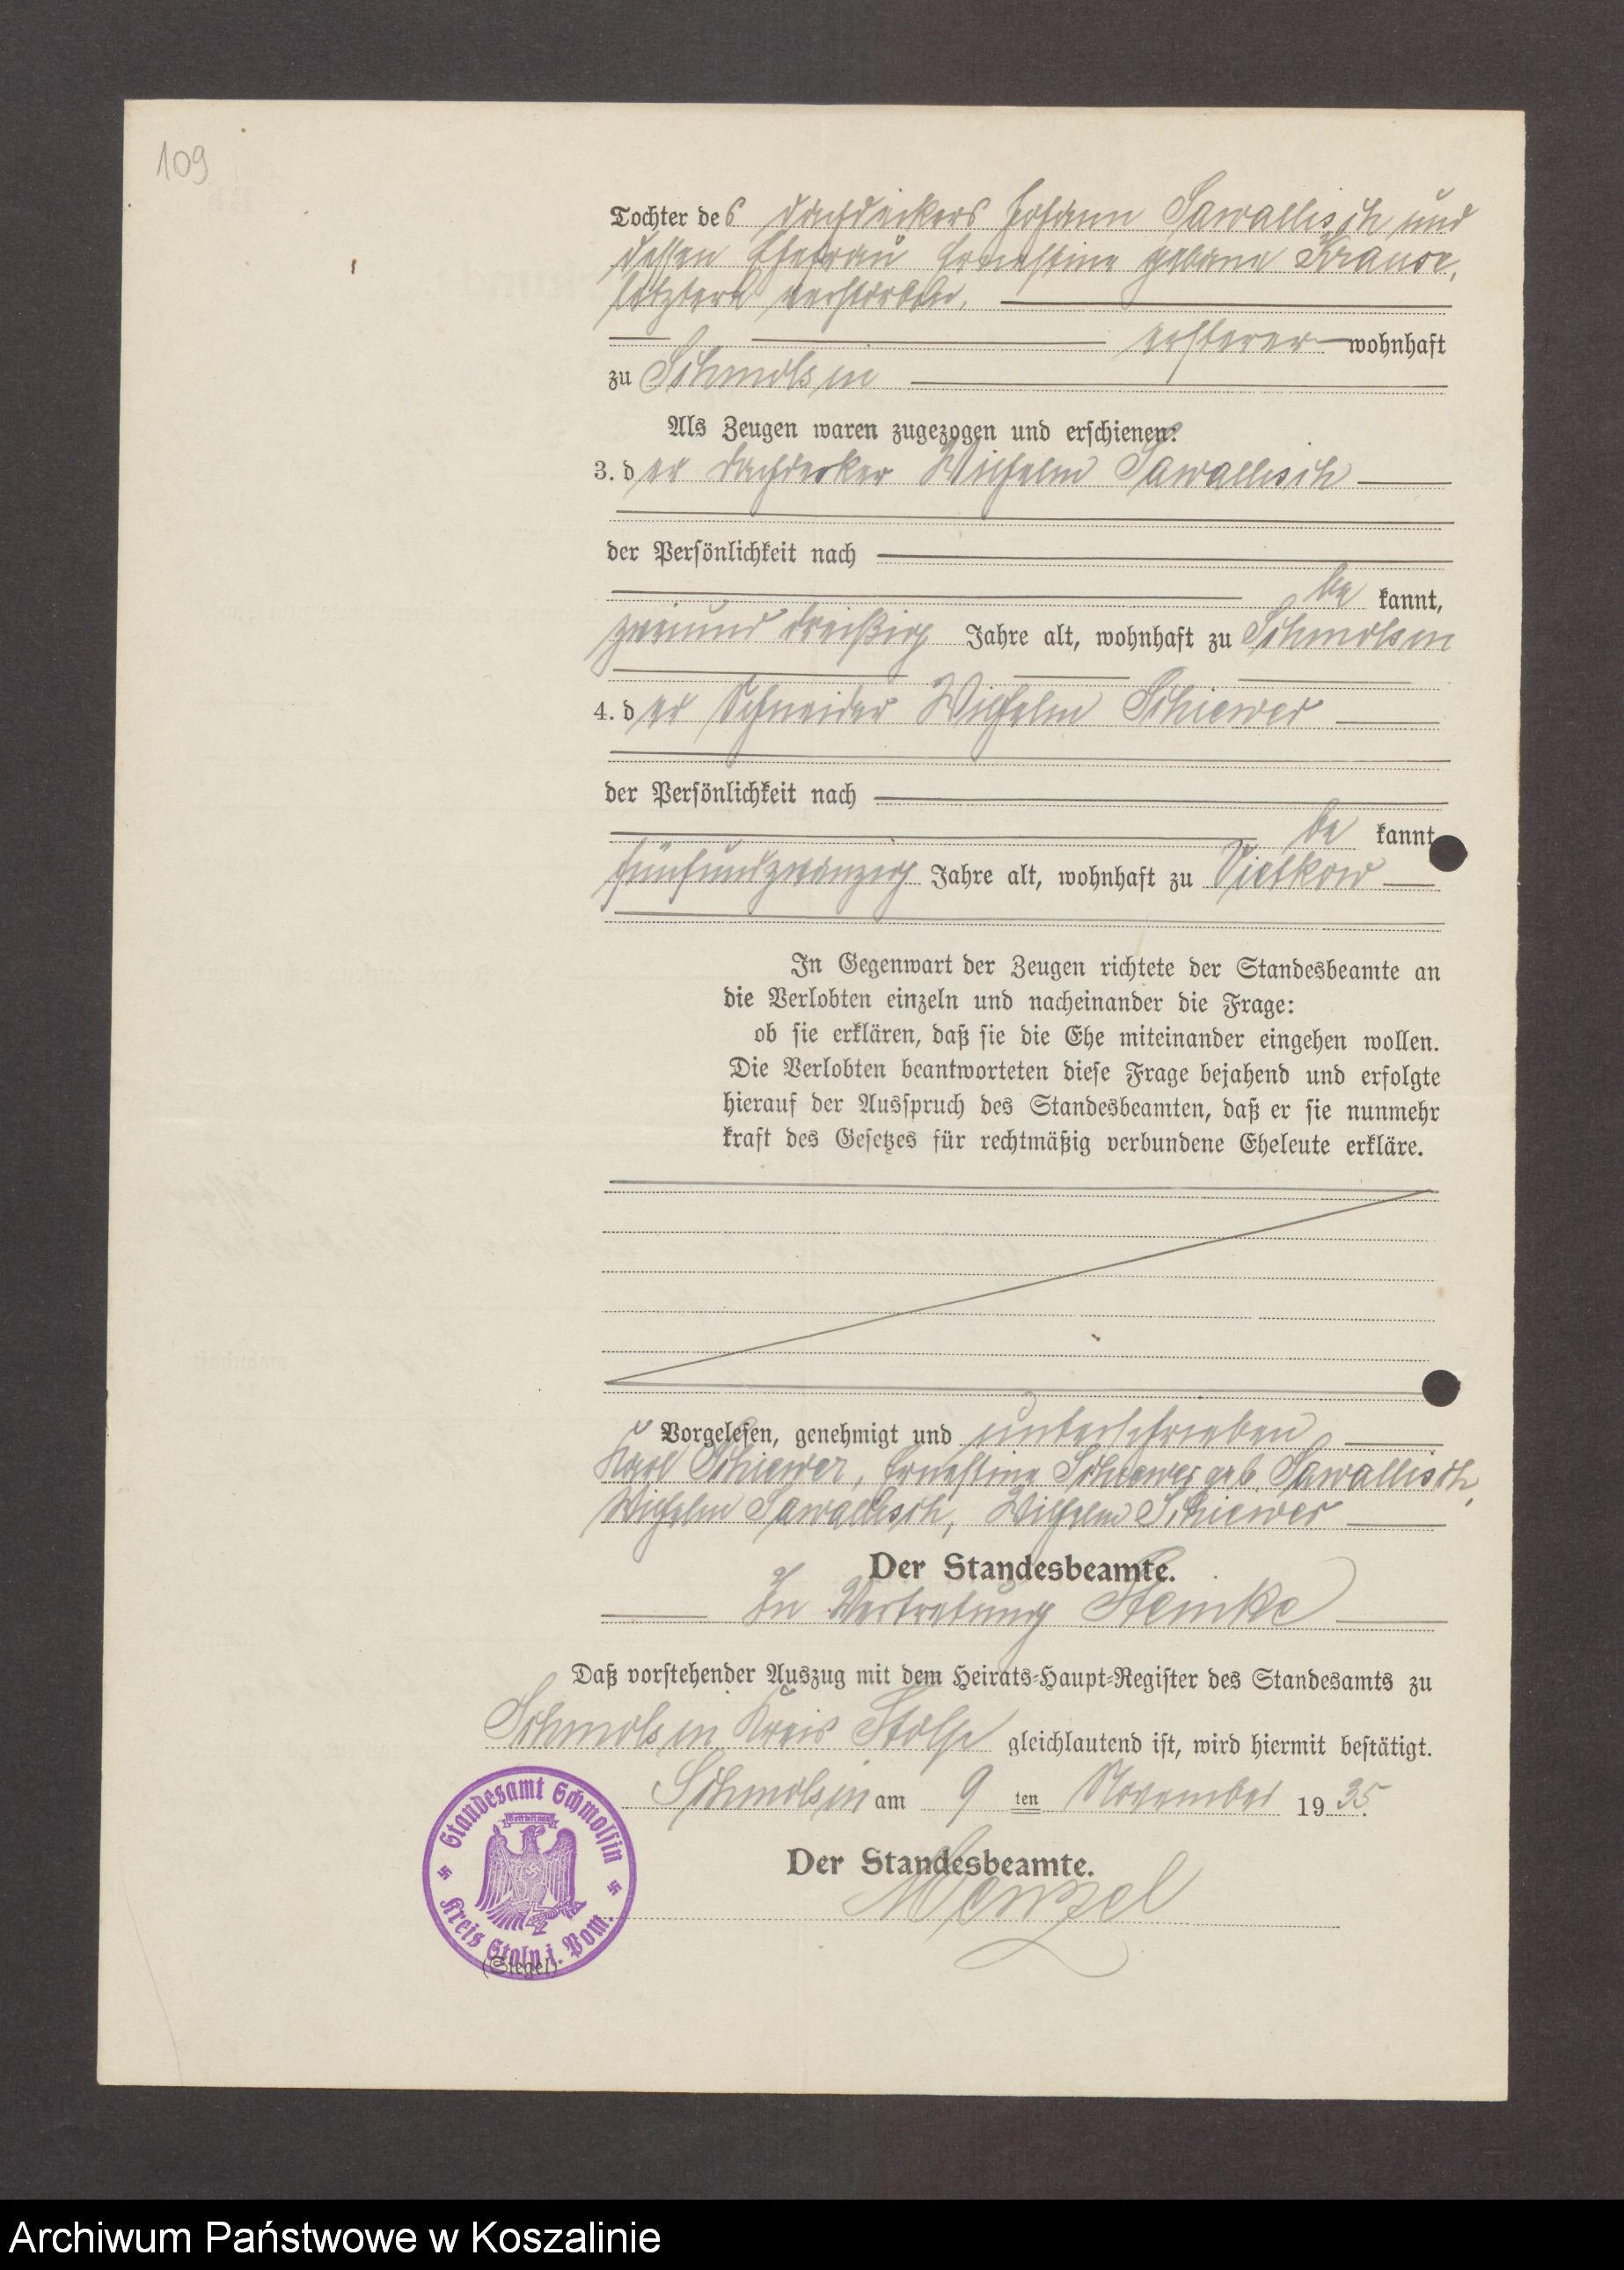 109
Tochter des Dachdeckers Johann Sawallisch und
dessen Ehefrau Ernestine geborne Krause,
letztere verstorben,
ersterer wohnhaft
zu Schmolsin
Als Zeugen waren zugezogen und erschienen:
3. der Dachdecker Wilhelm Sawallisch
der Persönlichkeit nach
be kannt,
zweiund dreißig Jahre alt, wohnhaft zu Schmolsin
4. der Schneider Wilhelm Schiewer
der Persönlichkeit nach
be kannt
fünfundzwanzig Jahre alt, wohnhaft zu Vietkow
In Gegenwart der Zeugen richtete der Standesbeamte an
die Verlobten einzeln und nacheinander die Frage:
ob sie erklären, daß sie die Ehe miteinander eingehen wollen.
Die Verlobten beantworteten diese Frage bejahend und erfolgte
hierauf der Ausspruch des Standesbeamten, daß er sie nunmehr
kraft des Gesetzes für rechtmäßig verbundene Eheleute erkläre.
Vorgelesen, genehmigt und unterschrieben
Karl Schiewer, Ernestine Schiewer geb. Sawallisch,
Wilhelm Sawallisch, Wilhelm Schiewer
Der Standesbeamte.
In Vertretung
Daß vorstehender Auszug mit dem Heirats-Haupt-Register des Standesamts zu
Schmolsin Kreis Stolp gleichlautend ist, wird hiermit bestätigt.
Schmolsin am 9 ten November 1935.
Der Standesbeamte.
Wenzel
Standesamt Schmolsin
Kreis Stolp i. Pom.
(Siegel)
Archiwum Państwowe w Koszalinie